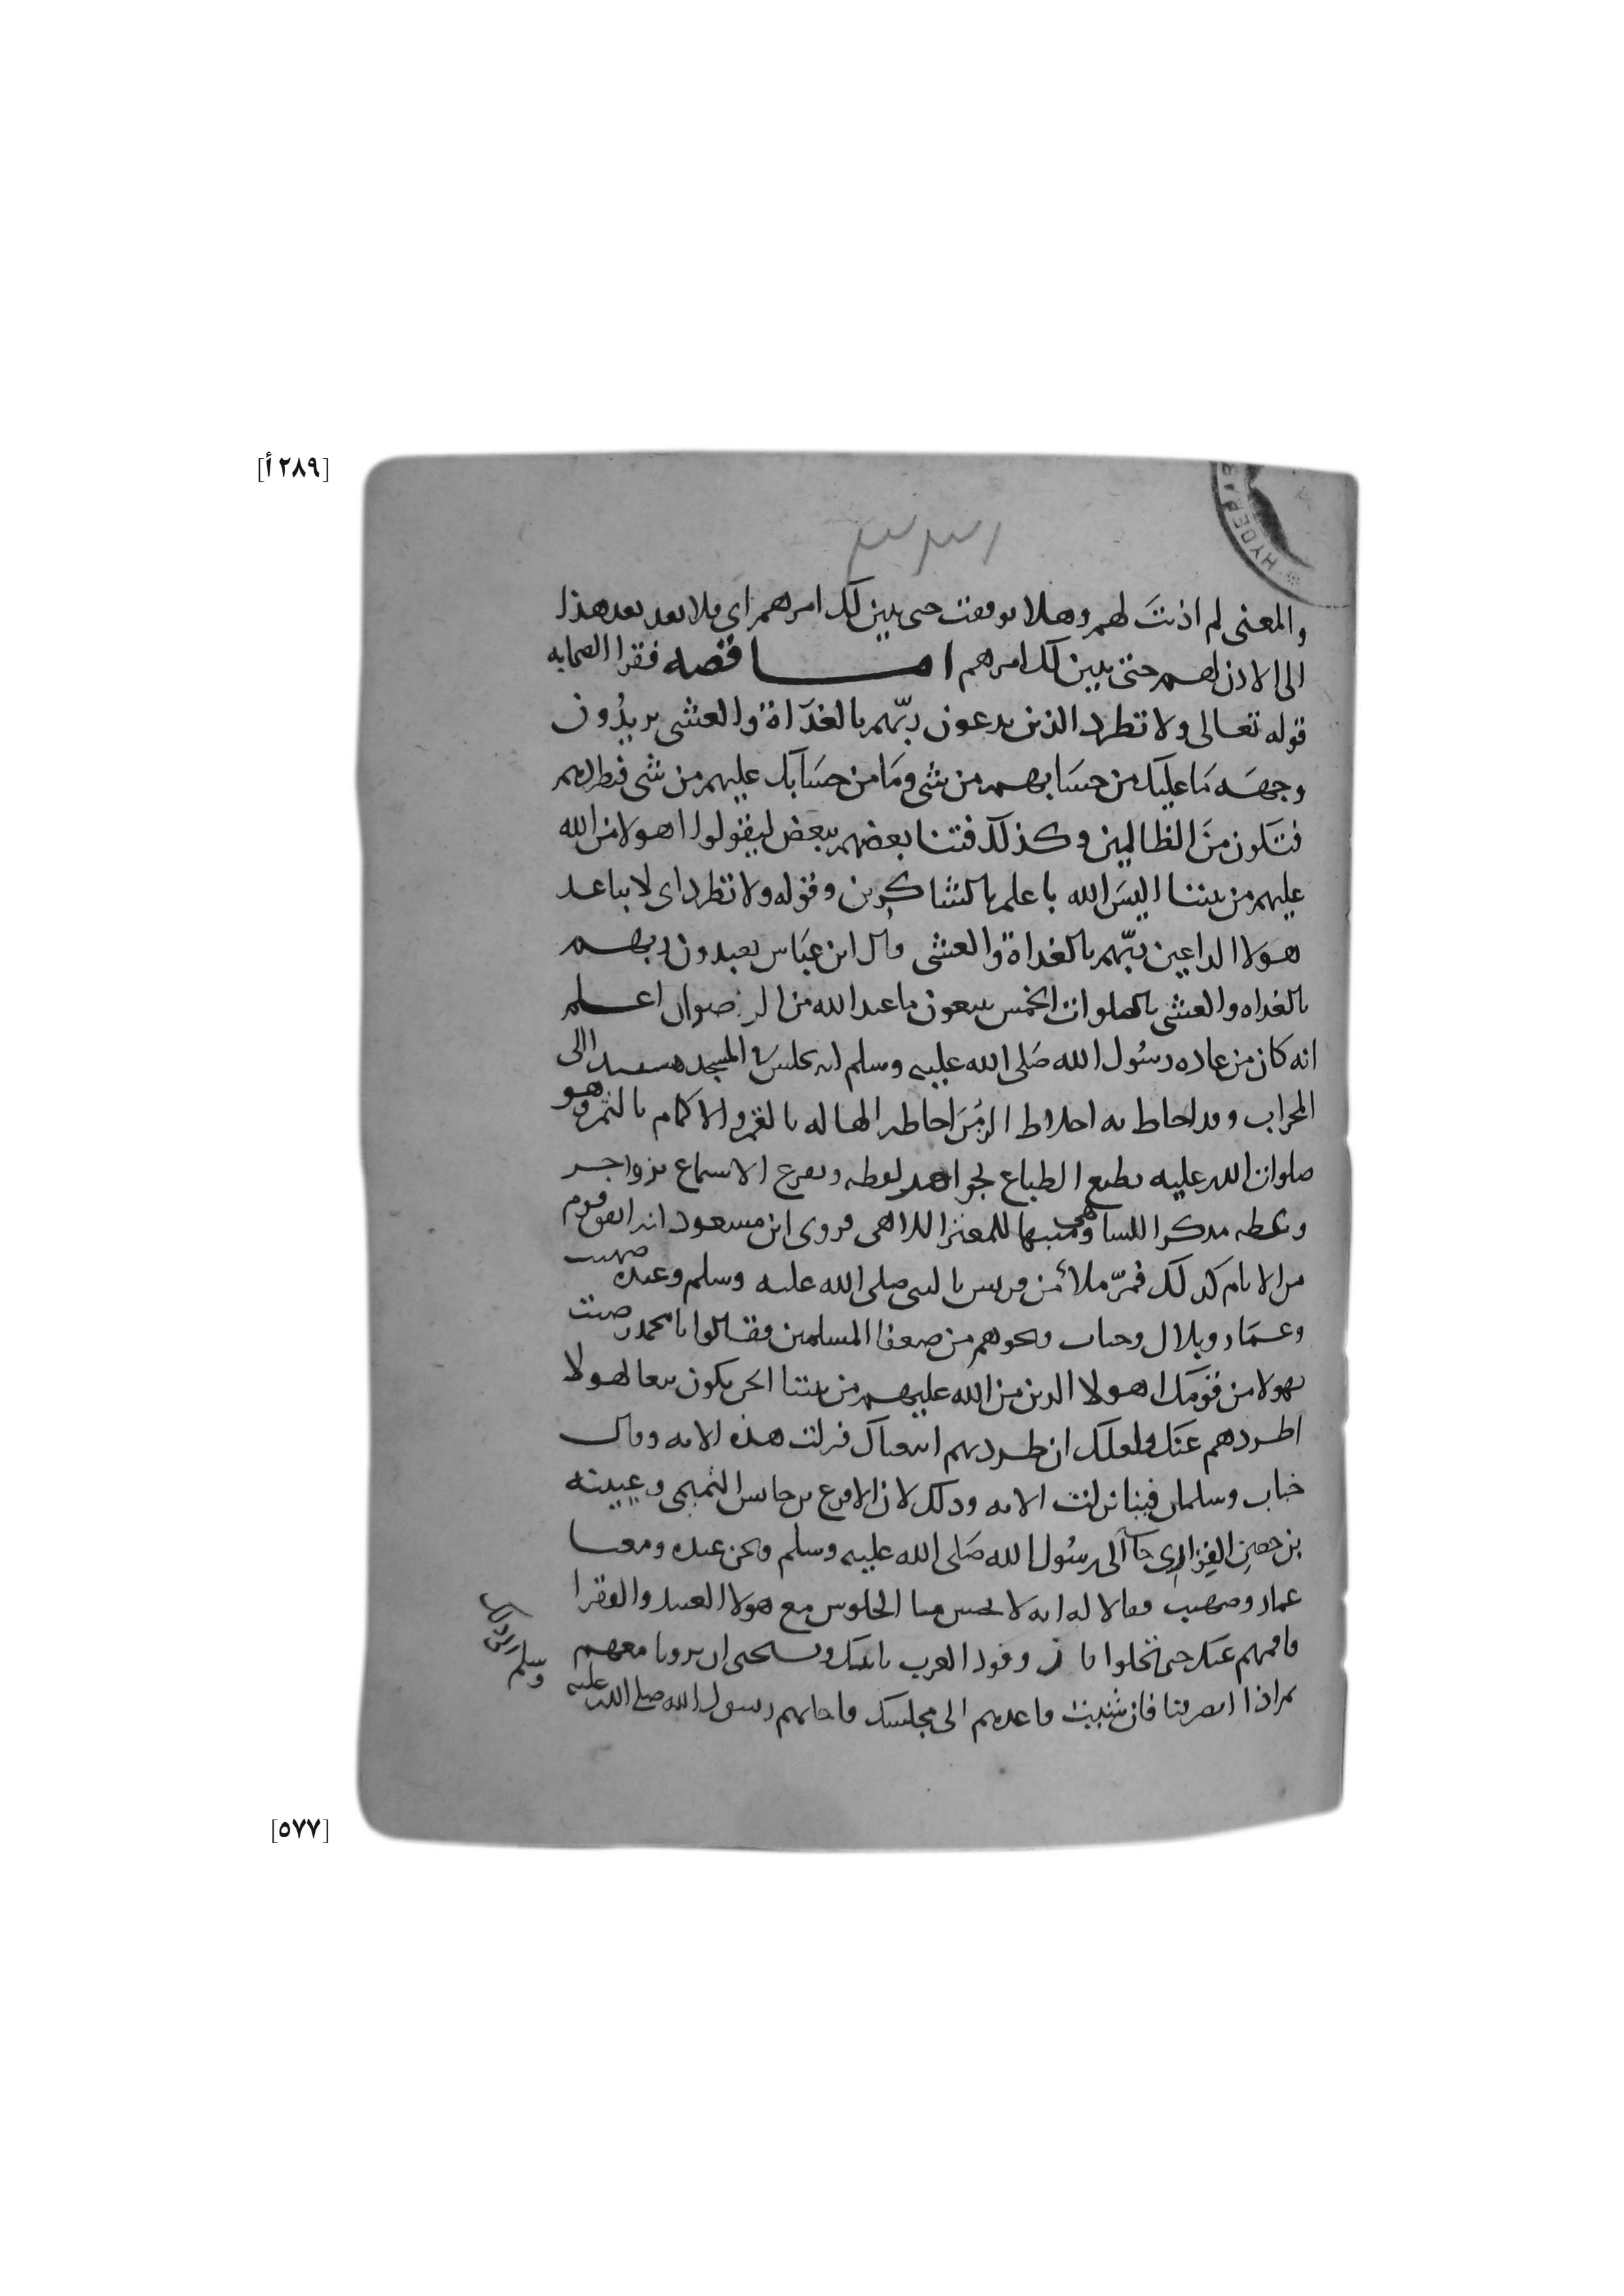 [٢٨٩ أ]
HYDER
والمعنى لم اذنت لهم وهلا توقفت حتى يتبين لك امرهم اى فلا تعد بعد هذا
الى الاذن لهم حتى يتبين لك امرهم اما قصه فقرا الصحابه
قوله تعالى ولا تطرد الذين يدعون ربّهم بالغداة والعشى يريدُون
وجهه مَا عليك من حسَابهم من شى ومَا من حسَابك عليهم من شى فتطردهم
فتكون منَ الظالمين وكذلك فتنا بعضهم ببعض ليقولوا اهولا من الله
عليهم من بيننا اليسَ الله باعلم بالشاكرين وقوله ولا تطرد اى لا تباعد
هولا الداعين ربّهم بالغداة والعشى قال ابن عبَاس يعبدون ربهم
بالغداه والعشى بالصلوات الخمس يبتغون ما عند الله من الرضوان اعلم
انه كان من عاده رسُول الله صَلى الله عليه وسلم ان يجلس فى المسجد مستندا الى
المحراب وقد احاط به اخلاط الزمَر احاطه الهاله بالقمر والاكمام بالثمر وهو
صلوات الله عليه يطبع الطباع بجواهر لفظه ويقرع الاسماع بزواجر
وعظه مذكرا للساهى ومنبها للمغتر اللاهى فروى ابن مسعود انه اتفق يوم
من الايام كذلك فمرّ ملأ من قريش بالنبى صلى الله عليه وسلم وعنده صهيب
وعمَار وبلال وخباب ونحوهم من ضعفا المسلمين فقالوا يا محمد رضيت
بهولا من قومَك اهولا الذين من الله عليهم من بيننا انحن نكون تبعا لهولا
اطردهم عنك ولعلك ان طردتهم اتبعناك فنزلت هذه الايه وقال
خباب وسلمان فينا نزلت الايه وذلك لان الاقرع بن حابس التميمى وعيينه
بن حصن الفزارى جآ الى رسُول الله صَلى الله عليه وسلم ونحن عنده ومعنا
عمار وصهيب فقالا له انه لا يحسن منا الجلوس مع هولا العبيد والفقرا
فاقمهم عنك حتى نخلوا فان وفود العرب تاتيك ونستحيى ان يرونا معهم
ثم اذا انصرفنا فان شيت فاعدهم الى مجلسك فاجابهم رسول الله صلى الله عليه
وسلم الى ذلك
[٥٧٧]